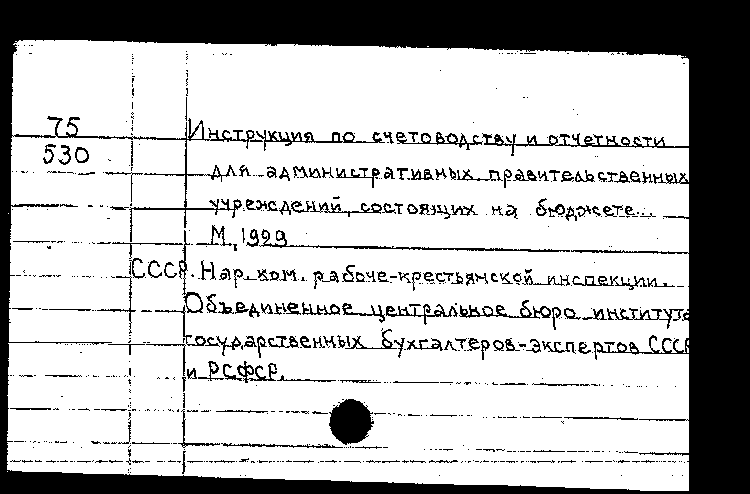 75
530
Инструкция по счетоводству и отчетности
для административных правительственных
учреждений, состоящих на бюджете...
М., 1929
СССР. Нар. ком. рабоче-крестьянской инспекции.
Объединенное центральное бюро института
государственных бухгалтеров-экспертов СССР
и РСФСР.